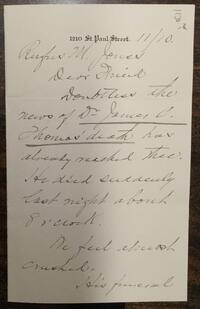 1210 St. Paul Street. 11/10
Rufus M. Jones
Dear Friend
Doubtless the
news of Dr James C.
Thomas' death has
already reached thee.
He died suddenly
last night about
8 o'clock.
We feel almost
crushed.
His funeral